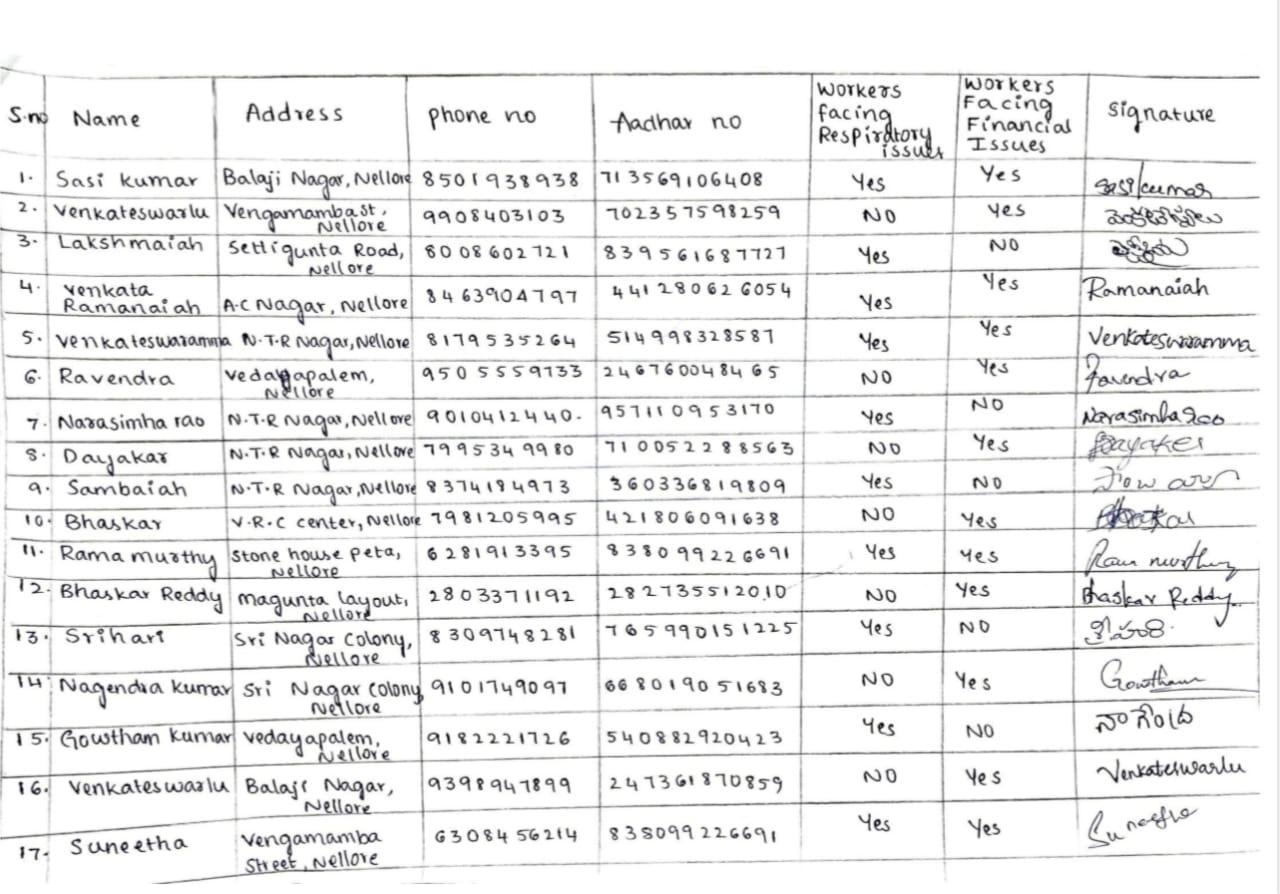 S.no Name Address phone no Aadhar no Workers facing Respiratory issues Workers Facing Financial Issues signature
1. Sasi kumar Balaji Nagar, Nellore 8501938938 713569106408 Yes Yes Sasikumar
2. Venkateswarlu Vengamamba st, Nellore 9908403103 702357598259 NO Yes
3. Lakshmaiah Settigunta Road, Nellore 8008602721 839561687727 Yes NO
4. Venkata Ramanaiah A.C Nagar, Nellore 8463904797 441280626054 Yes Yes Ramanaiah
5. Venkateswaramma N.T.R Nagar, Nellore 8179535264 514998328587 Yes Yes Venkateswaramma
6. Ravendra vedayapalem, Nellore 9505559733 246760048465 NO Yes Ravendra
7. Narasimha rao N.T.R Nagar, Nellore 9010412440. 957110953170 Yes NO Narasimha rao
8. Dayakar N.T.R Nagar, Nellore 7995349980 710052288563 NO Yes Dayaker
9. Sambaiah N.T.R Nagar, Nellore 8374184973 360336819809 Yes NO
10. Bhaskar V.R.C center, Nellore 7981205995 421806091638 NO Yes Bhaskar
11. Rama murthy stone house peta, Nellore 6281913395 838099226691 Yes Yes Ram murthy
12. Bhaskar Reddy magunta layout, Nellore 2803371192 282735512010 NO Yes Bhaskar Reddy.
13. Srihari Sri Nagar colony, Nellore 8309748281 765990151225 Yes NO శ్రీహరి.
14. Nagendra kumar Sri Nagar colony Nellore 9101749097 668019051683 NO Yes Gowtham
15. Gowtham kumar vedayapalem, Nellore 9182221726 540882920423 Yes NO నాగేంద్ర
16. Venkateswarlu Balaji Nagar, Nellore 9398947899 247361870859 NO Yes Venkateswarlu
17. Suneetha Vengamamba Street, Nellore 6308456214 838099226691 Yes Yes Suneetha